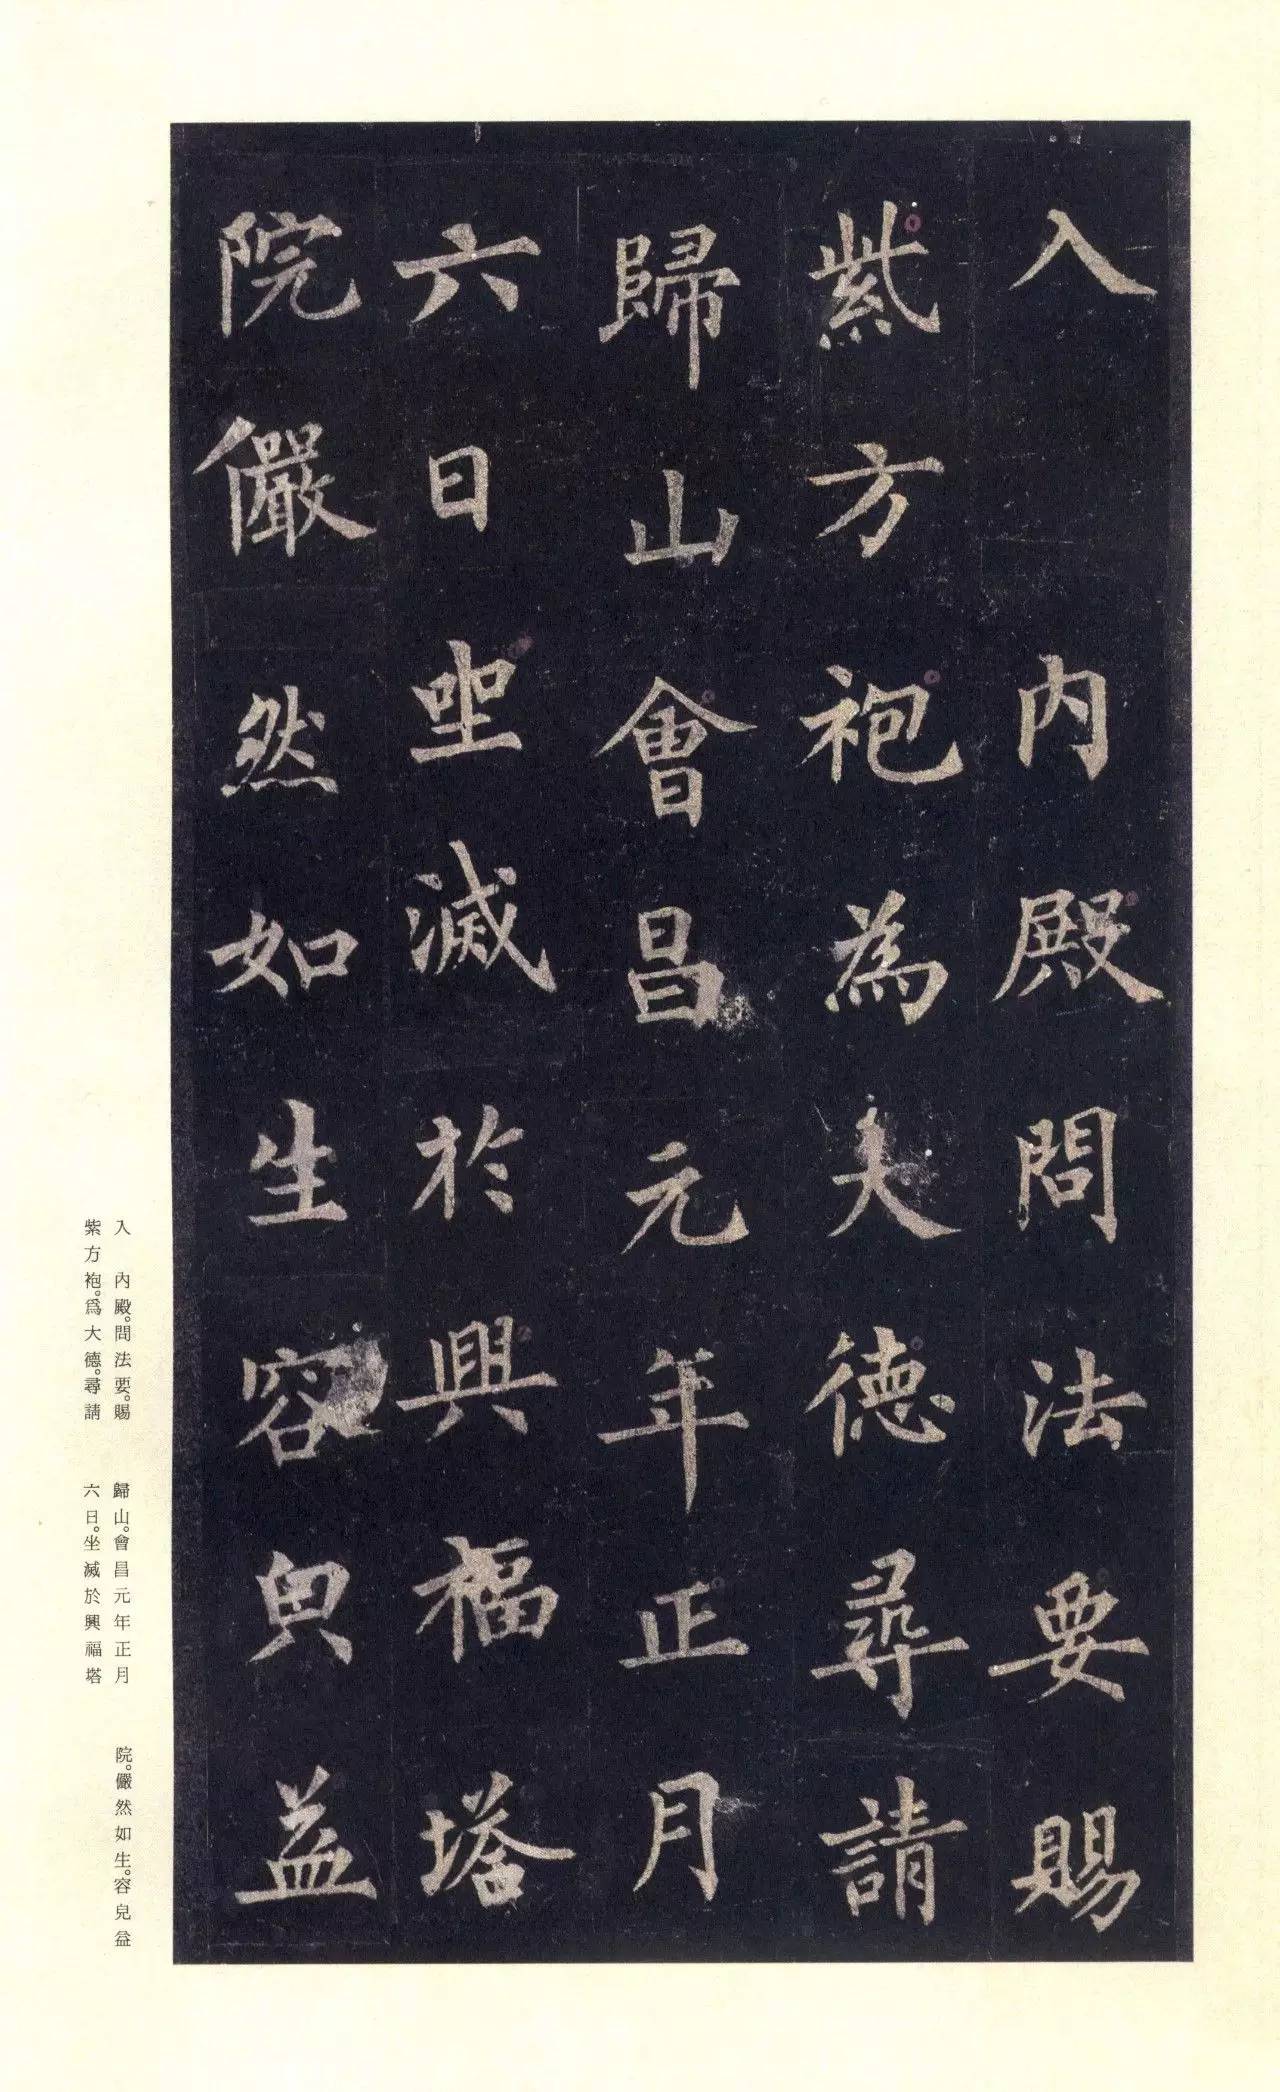 入 内殿問法要賜
紫方袍為大德尋請
歸山會昌元年正月
六日坐滅於興福塔
院儼然如生容皃益
入 內殿。問法要。賜
紫方袍。爲大德。尋請
歸山。會昌元年正月
六日。坐滅於興福塔
院。儼然如生。容皃益